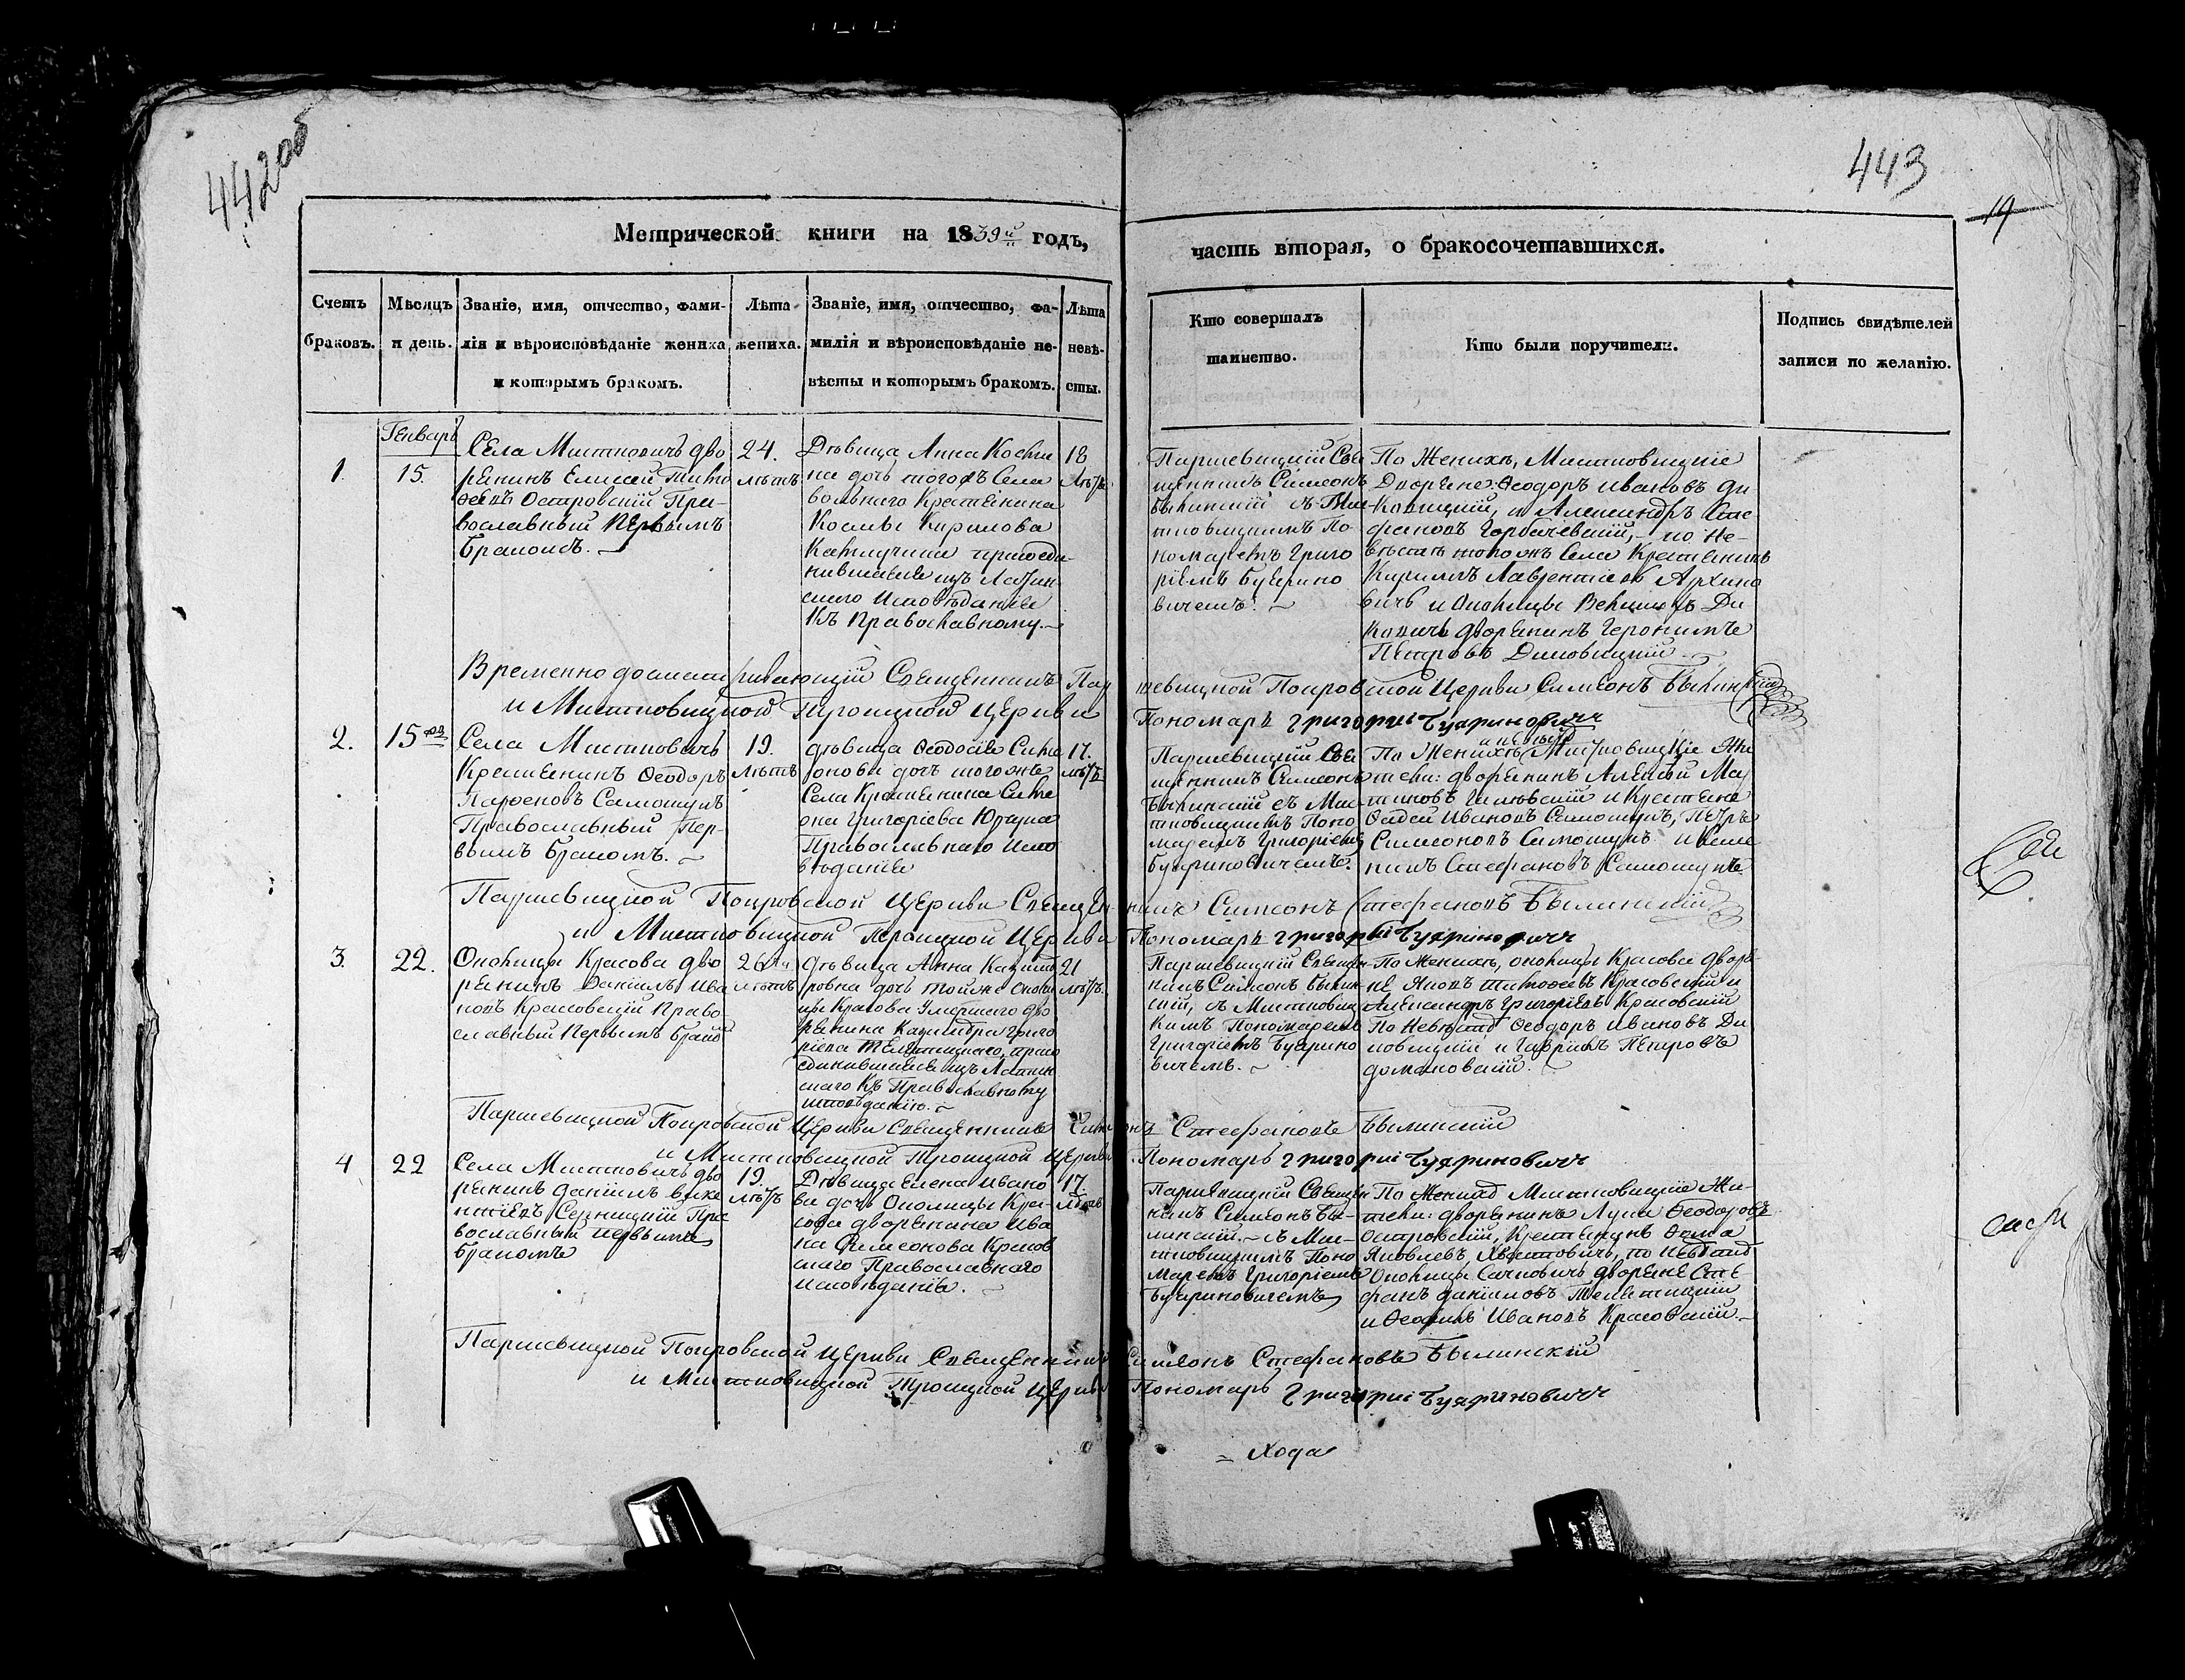 442об
443
19
Метрической книги на 1839й годъ,
часть вторая, о бракосочетавшихся.
Счетъ браковъ.
Мѣсяцъ и день.
Званіе, имя, отчество, фами-
лія и вѣроисповѣданіе жениха
и которымъ бракомъ.
Лѣта
жениха.
Званіе, имя, отчество, фа-
милія и вѣроисповѣданіе не-
вѣсты и которымъ бракомъ.
Лѣта
невѣ-
сты.
Кто совершалъ
таинство.
Кто были поручители.
Подпись свидѣтелей
записи по желанію.
Генварь
1.
15.
Села Мистковичъ дво
рянинъ Елисей Тимо
ѳеевъ Островскій Пра-
вославный Первымъ
бракомъ.
24.
лѣтъ
Дѣвица Анна Косми
на дочь тогожъ Села
вольнаго Крестянина
Космы Кирилова
присоеди
нившаяся изъ Латин
скаго Исповѣданія
Къ Православному.
18
лѣтъ
Паршевицкій Свя
щенникъ Симеонъ
Былинскій съ Мис
тковицкимъ По
номаремъ Григо
ріемъ Буярино
вичемъ.
По Женихѣ, Мистковицкіе
Дворяне Ѳеодоръ Ивановъ Ди
ковицкій, и Александръ Сте
фановъ Горбачевскій, по Не-
вѣстѣ тогожъ Села Крестянинъ
Кирилъ Лаврентіевъ
вичь и Околицы Ди
ковичь дворянинъ Іеронимъ
Петровъ Диковицкій
Временно досматривающій Священникъ Паршевицкой Покровской Церкви Симеонъ Былинскій
и Мистковицкой Троицкой Церкви Пономарь Григорій Буяриновичъ
2.
15го
Села Мистковичь
Крестянинъ Ѳеодоръ
Парѳеновъ Самошукъ
Православный Пер-
вымъ бракомъ.
19.
лѣтъ
дѣвица Ѳеодосія Симе
онова дочь тогожъ
Села Крестянина Симе
она Григоріева
Православнаго Испо
вѣданія
17.
лѣтъ
Паршевицкій Свя
щенникъ Симеонъ
Былинскій съ Мис
тковицкимъ Поно
маремъ Григоріемъ
Буяриновичемъ.
По Женихѣ и невѣстѣ Мистковицкіе Жи
тели: дворянинъ Алексѣй Мар
тиновъ и Крестяне
Ѳадей Ивановъ Самошукъ, Петръ
Симеоновъ Самошукъ и
Стефановъ Самошукъ
Паршевицкой Покровской Церкви Священникъ Симеонъ Стефановъ Былинскій
и Мистковицкой Троицкой Церкви Пономарь Григорій Буяриновичъ
3.
22.
Околицы Красова дво
рянинъ Даніилъ Ива
новъ Красовскій Право
славный Первымъ брако
26
лѣтъ
дѣвица Анна Казими
ровна дочь тойже Околи
цы Красова Умершаго дво
рянина Казимира Григо
ріева присо
единившаяся изъ Латин
скаго Къ Православному
исповѣданію.
21
лѣтъ.
Паршевицкій Священ
никъ Симеонъ Былин
скій, съ Мистковиц
кимъ Пономаремъ
Григоріемъ Буярино
вичемъ.
По Женихѣ, околицы Красова дворя
не Яковъ Тимоѳеевъ Красовскій и
Александръ Григоріевъ Красовскій
По Невѣстѣ Ѳеодоръ Ивановъ Ди
ковицкій и Гаврилъ Петровъ
домановскій.
Паршевицкой Покровской Церкви Священникъ Симеонъ Стефановъ Былинскій
и Мистковицкой Троицкой Церкви Пономарь Григорій Буяриновичъ
4
22
Села Мистковичъ дво
рянинъ Даніилъ Вике
нтіевъ Пра
вославный первымъ
бракомъ
19.
лѣтъ
Дѣвица Елена Ивано
ва дочь Околицы Кра-
сова дворянина Ива
на Симеонова Красов
скаго Православнаго
исповѣданія.
17.
лѣтъ
Паршевицкій Священ
никъ Симеонъ Бы-
линскій съ Мис-
тковицкимъ Поно
маремъ Григоріемъ
Буяриновичемъ
По Женихѣ Мистковицкіе Жи-
тели: дворянинъ Лука Ѳеодоровъ
Островскій, Крестянинъ Ѳома
Яковлевъ Хвестовичь, по невѣстѣ
Околицы дворяне Сте
фанъ Даніиловъ
и Ѳеофилъ Ивановъ Красовскій.
Паршевицкой Покровской Церкви Священникъ Симеонъ Стефановъ Былинскій
и Мистковицкой Троицкой Церкви Пономарь Григорій Буяриновичъ
Хода